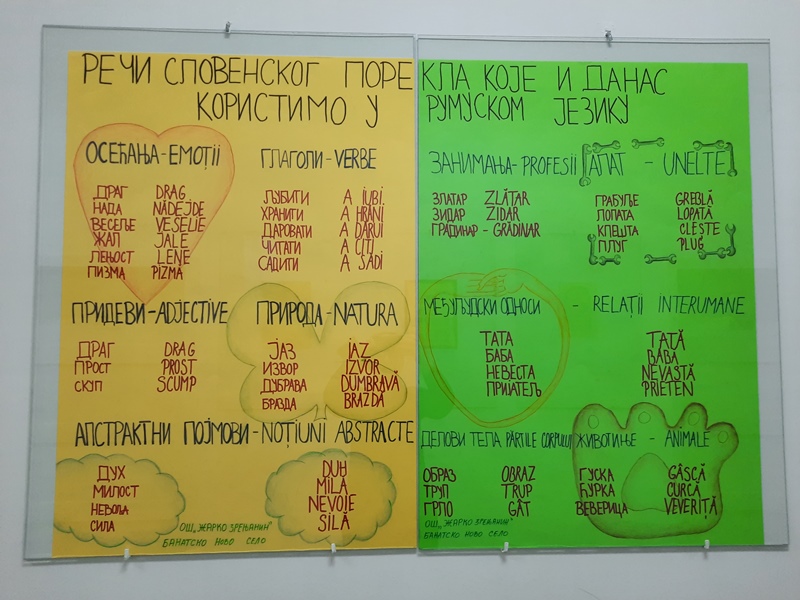 РЕЧИ СЛОВЕНСКОГ ПОРЕКЛА КОЈЕ И ДАНАС
КОРИСТИМО У РУМУСКОМ ЈЕЗИКУ
ОСЕЋАЊА-EMOȚII
ДРАГ DRAG
НАДА NĂDEJDE
ВЕСЕЉЕ VESELIE
ЖАЛ JALE
ЛЕЊОСТ LENE
ПИЗМА PIZMĂ
ГЛАГОЛИ-VERBE
ЉУБИТИ A IUBI.
ХРАНИТИ A HRĂNI
ДАРОВАТИ A DĂRUI
ЧИТАТИ A CITI
САДИТИ A SĂDI
ПРИДЕВИ-ADJECTIVE
ДРАГ DRAG
ПРОСТ PROST
СКУП SCUMP
ПРИРОДА-NATURA
ЈАЗ IAZ
ИЗВОР IZVOR
ДУБРАВА DUMBRAVĂ
БРАЗДА BRAZDĂ
АПСТРАКТНИ ПОЈМОВИ-NOȚIUNI ABSTRACTE
ДУХ DUH
МИЛОСТ MILĂ
НЕВОЉА NEVOIE
СИЛА SILĂ
ОШ„ЖАРКО ЗРЕЊАНИН"
БАНАТСКО НОВО СЕЛО
ЗАНИМАЊА-PROFESII
ЗЛАТАР ZLĂTAR
ЗИДАР ZIDAR
ГРАДИНАР - GRĂDINAR
АЛАТ - UNELTE
ГРАБУЉЕ GREBLĂ
ЛОПАТА LOPATĂ
КЛЕШТА CLEȘTE
ПЛУГ PLUG
МЕЂУЉУДСКИ ОДНОСИ - RELAȚII INTERUMANE
ТАТА TATĂ
БАБА BABĂ
НЕВЕСТА NEVASTĂ
ПРИЈАТЕЉ PRIETEN
ДЕЛОВИ ТЕЛА PĂRȚILE CORPULUI
ОБРАЗ OBRAZ
ТРУП TRUP
ГРЛО GÂT
ОШ„ЖАРКО ЗРЕЊАНИН"
БАНАТСКО НОВО СЕЛО
ЖИВОТИЊЕ - ANIMALE
ГУСКА GÂSCĂ
ЋУРКА CURCĂ
ВЕВЕРИЦА VEVERIȚĂ